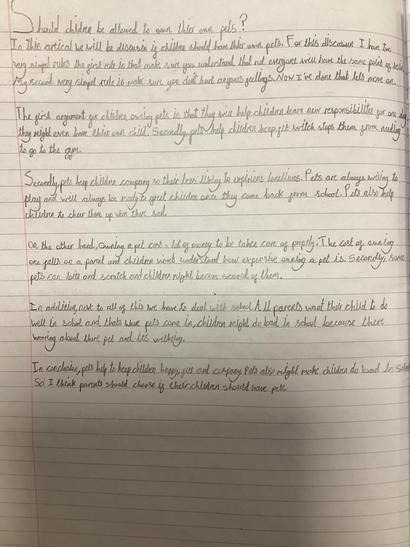 Should chidren be allowed to own thier own pets?
In this artical we will be discussing if children should have thier own pets. For this discussion I have two
very simpel rules the first rule is that make sure you understand that not everyone will have the same point of
My second very simpel rule is make sure you don't hurt anyones feelings. Now I've done that lets move on.
The first argument for children owning pets is that they will help children learn new responsibilities for one day
they might even have thier own child. Secondly, pets help children keep fit witch stops them from needing
to go to the gym.
Secondly, pets keep children company so their less likely to expirions loneliness. Pets are always willing to
play and will always be ready to greet children once they come back form school. Pets also help
children to cheer them up when their sad.
On the other hand, owning a pet cost a lot of money to be taken care of properly. The cost of owning
one falls on a parent and children wont understand how expensive owning a pet is. Secondly, some
pets can bite and scratch and children might becom scared of them.
In addition, next to all of this we have to deal with school. All parents want their child to do
well in school and thats where pets come in, children might do bad in school because there
worring about there pet and its
In conclusion, pets help to keep children happy, and company. Pets also might make children do bad in
So I think parents should choose if their children should have pets.